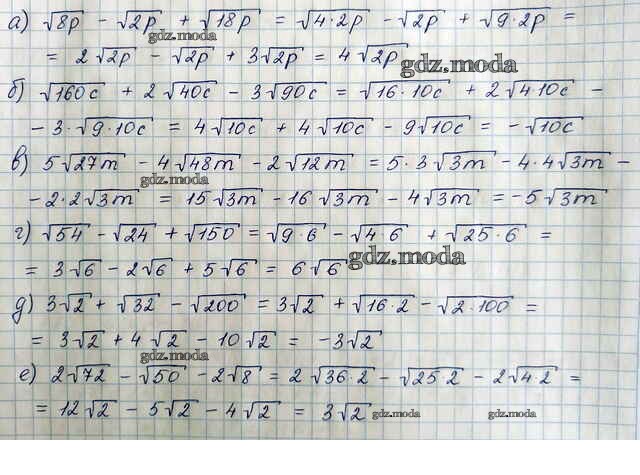 а) √8p − √2p + √18p = √4·2p − √2p + √9·2p =
gdz.moda
= 2√2p − √2p + 3√2p = 4√2p
gdz.moda
б) √160c + 2√40c − 3√90c = √16·10c + 2√4·10c −
− 3·√9·10c = 4√10c + 4√10c − 9√10c = −√10c
в) 5√27m − 4√48m − 2√12m = 5·3√3m − 4·4√3m −
gdz.moda
− 2·2√3m = 15√3m − 16√3m − 4√3m = −5√3m
г) √54 − √24 + √150 = √9·6 − √4·6 + √25·6 =
gdz.moda
= 3√6 − 2√6 + 5√6 = 6√6
д) 3√2 + √32 − √200 = 3√2 + √16·2 − √2·100 =
= 3√2 + 4√2 − 10√2 = −3√2
gdz.moda
е) 2√72 − √50 − 2√8 = 2√36·2 − √25·2 − 2√4·2 =
= 12√2 − 5√2 − 4√2 = 3√2
gdz.moda
gdz.moda